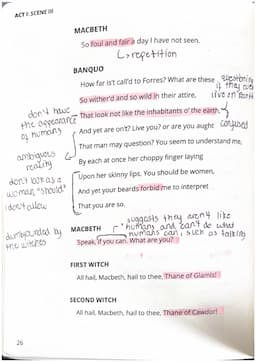 ACT I: SCENE III
MACBETH
So foul and fair a day I have not seen.
↳ repetition
BANQUO
How far is't call'd to Forres? What are these
questioning
if they even
live on earth
So wither'd and so wild in their attire,
don't have
the appearance
of humans
That look not like the inhabitants o' the earth,
And yet are on't? Live you? or are you aught
confused
That man may question? You seem to understand me,
ambiguous
reality
By each at once her choppy finger laying
Upon her skinny lips. You should be women,
don't look as a
woman "should"
And yet your beards forbid me to interpret
i don't allow
That you are so.
suggests they aren't like
humans and can't do what
humans can, such as talking
MACBETH
dumbfounded by
the witches
Speak, if you can. What are you?
FIRST WITCH
All hail, Macbeth, hail to thee, Thane of Glamis!
SECOND WITCH
All hail, Macbeth, hail to thee, Thane of Cawdor!
26